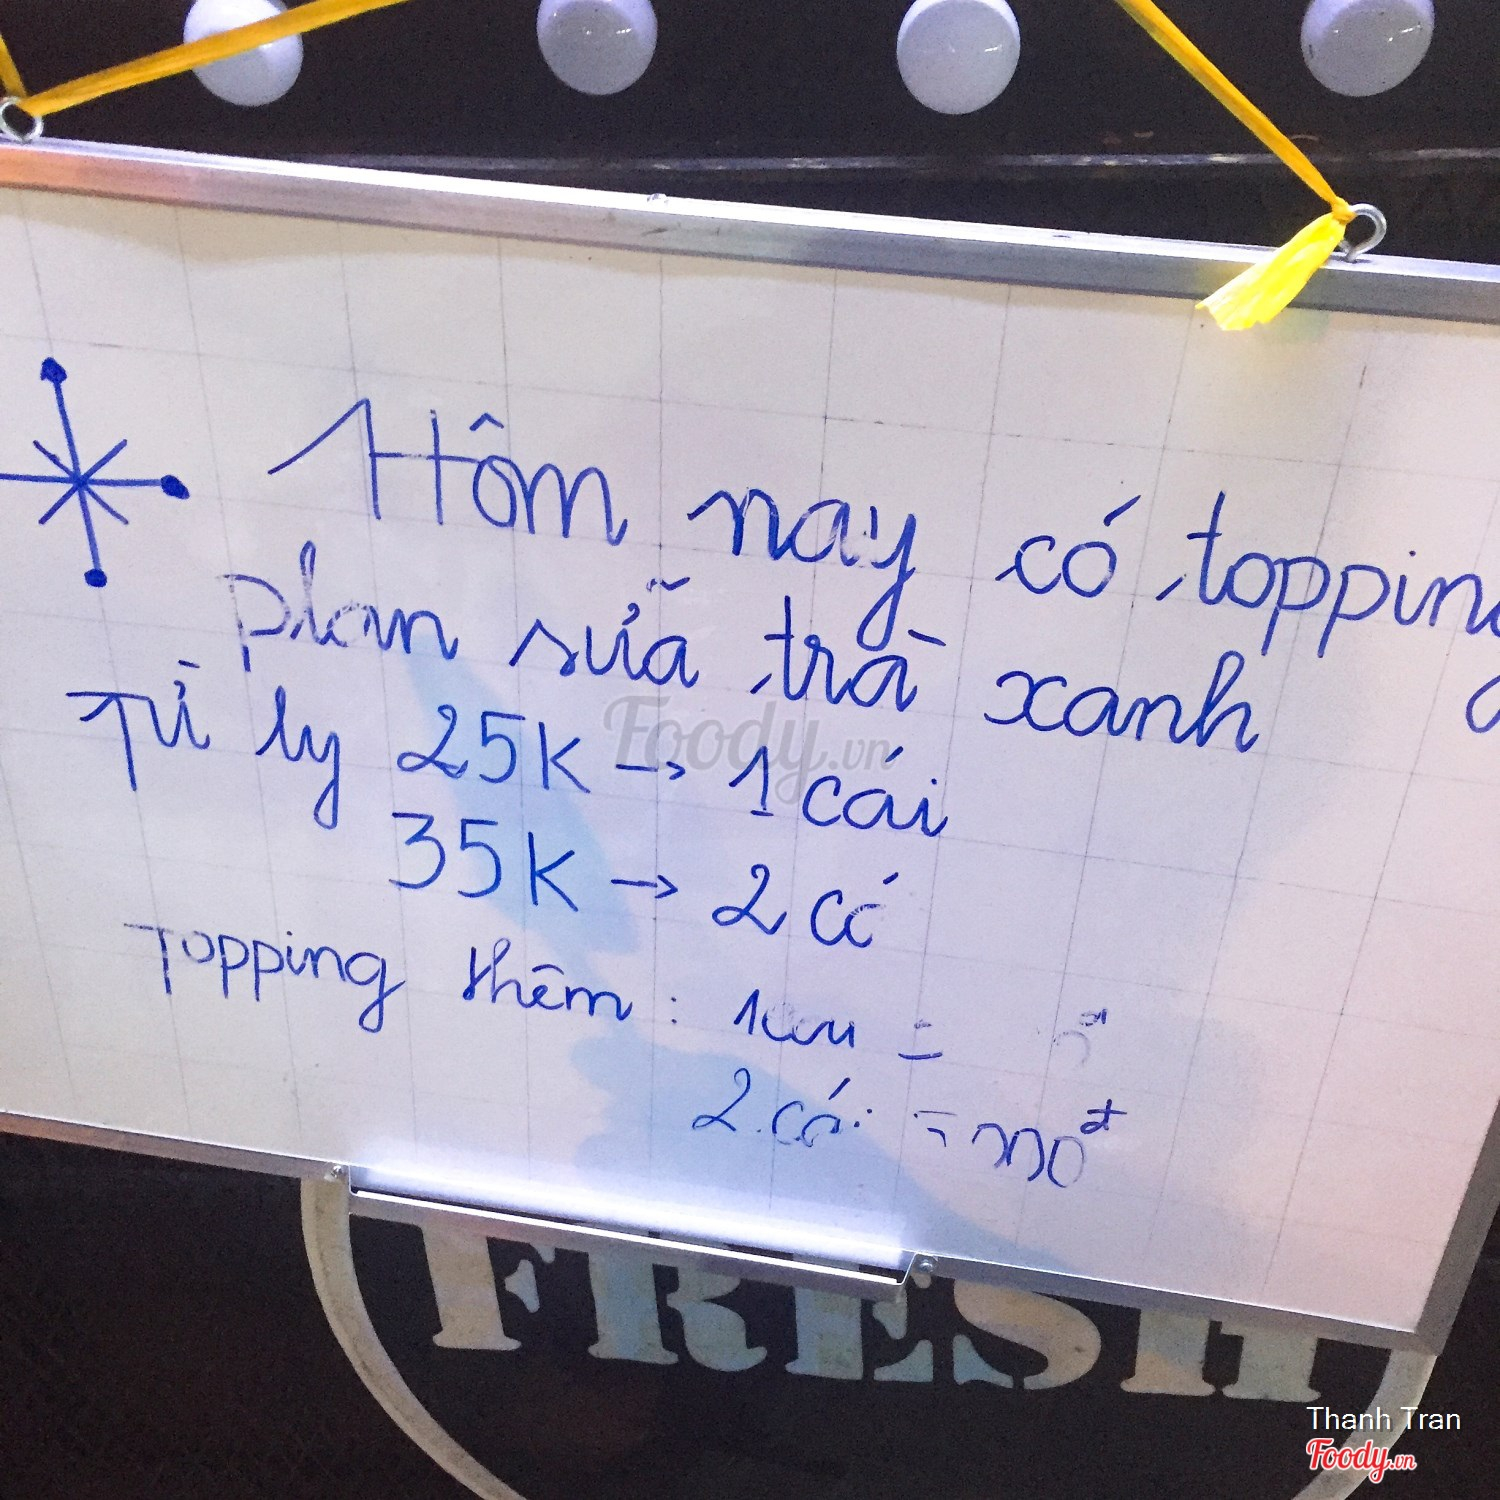 Hôm nay có topping
plan sữa trà xanh
Từ ly 25K → 1 cái
35K → 2 cá
Topping thêm :
2 cái =
FRESH
Foody.vn
Thanh Tran
Foody.vn